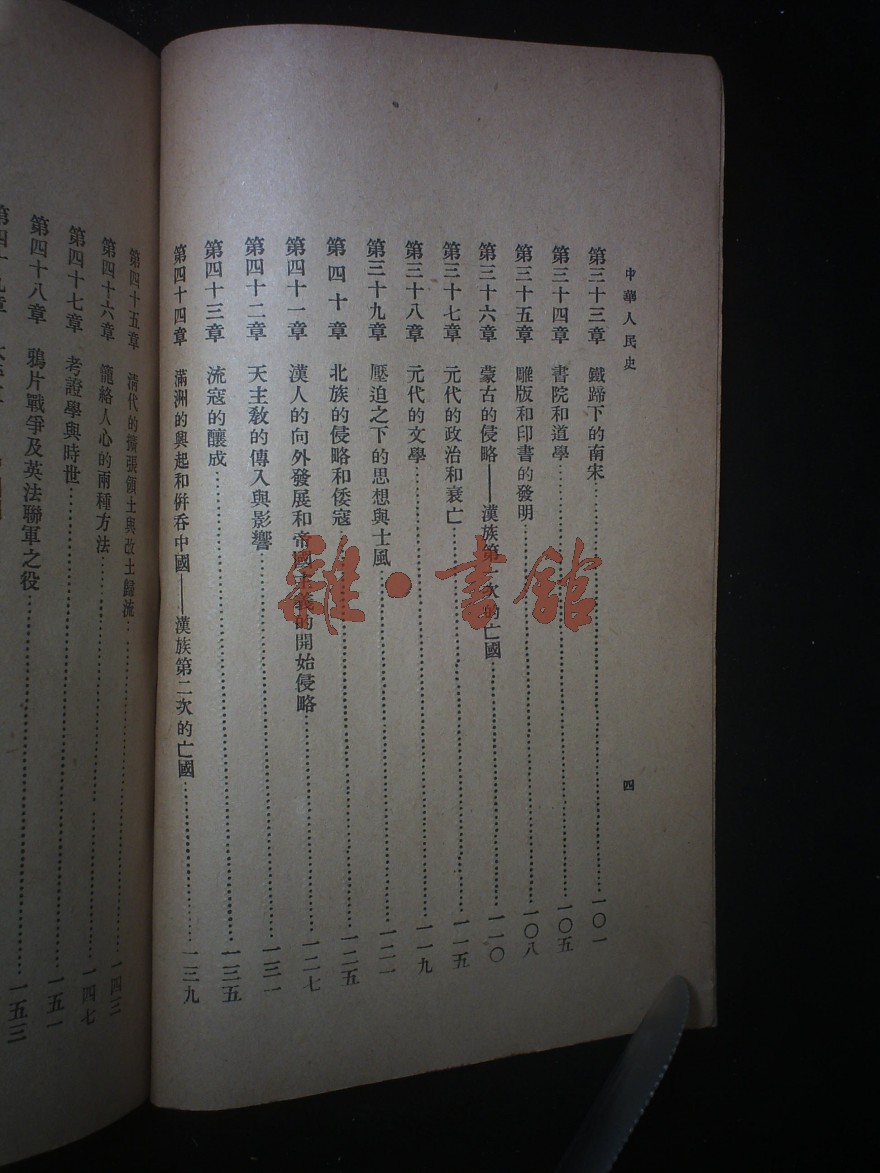 中華人民史
四
第三十三章 鐵蹄下的南宋……一〇一
第三十四章 書院和道學……一〇五
第三十五章 雕版和印書的發明……一〇八
第三十六章 蒙古的侵略——漢族第一次的亡國……一一〇
第三十七章 元代的政治和衰亡……一一五
第三十八章 元代的文學……一一九
第三十九章 壓迫之下的思想與士風……一二一
第四十章 北族的侵略和倭寇……一二五
第四十一章 漢人的向外發展和帝國主義的開始侵略……一二七
第四十二章 天主教的傳入與影響……一三一
第四十三章 流寇的釀成……一三五
第四十四章 滿洲的興起和併吞中國——漢族第二次的亡國……一三九
第四十五章 清代的擴張領土與改土歸流……一四三
第四十六章 籠絡人心的兩種方法……一四七
第四十七章 考證學與時世……一五一
第四十八章 鴉片戰爭及英法聯軍之役……一五三
第四十九章
雜·書館